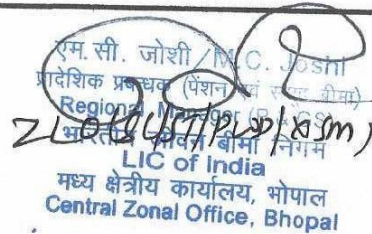 एम. सी. जोशी / M. C. Joshi
प्रादेशिक प्रबन्धक (पेंशन एवं समूह बीमा)
Regional Manager (P &
भारतीय जीवन बीमा निगम
LIC of India
मध्य क्षेत्रीय कार्यालय, भोपाल
Central Zonal Office, Bhopal